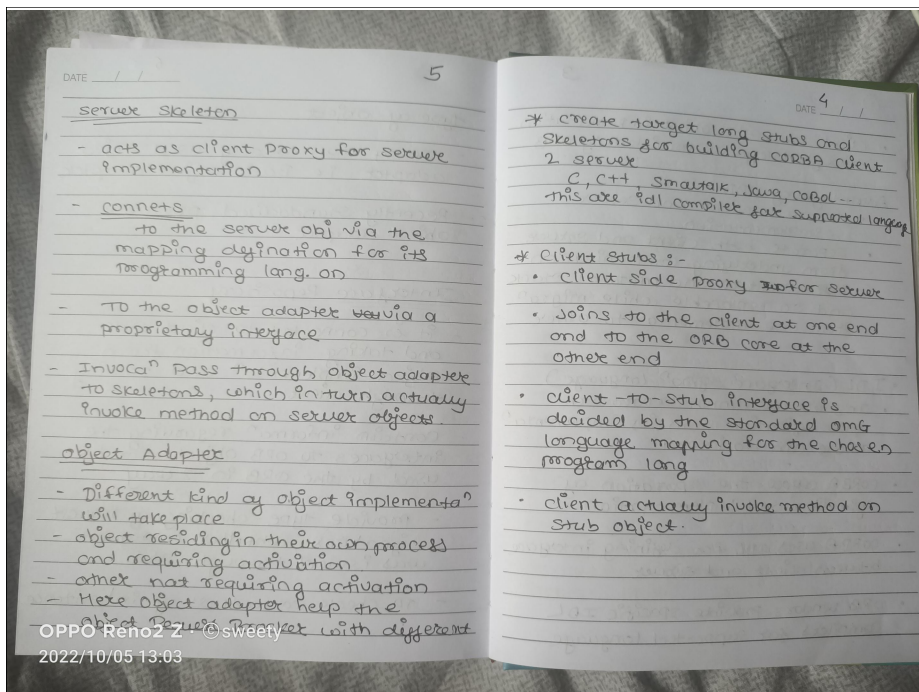 DATE / /
5
server skeleton
- acts as client proxy for server
implementation
- connets
to the server obj via the
mapping defination for its
programming lang. on
- To the object adapter via a
proprietary interface
- Invocaⁿ pass through object adapter
to skeletons, which in turn actually
invoke method on server objects.
object Adapter
- Different kind of object implementaⁿ
will take place
- object residing in their own process
and requiring activation
- other not requiring activation
- Here object adapter help the
object Request Broker with different
OPPO Reno2 Z · © sweety
2022/10/05 13:03
4
DATE / /
* create target lang stubs and
skeletons for building CORBA client
2 server
C, C++, smaltalk, Java, COBOL..
this are idl compiler for supported
* client stubs :-
• client side proxy for server
• Joins to the client at one end
and to the ORB core at the
other end
• client-to-stub interface is
decided by the standard OMG
language mapping for the chosen
program lang
• client actually invoke method on
stub object.